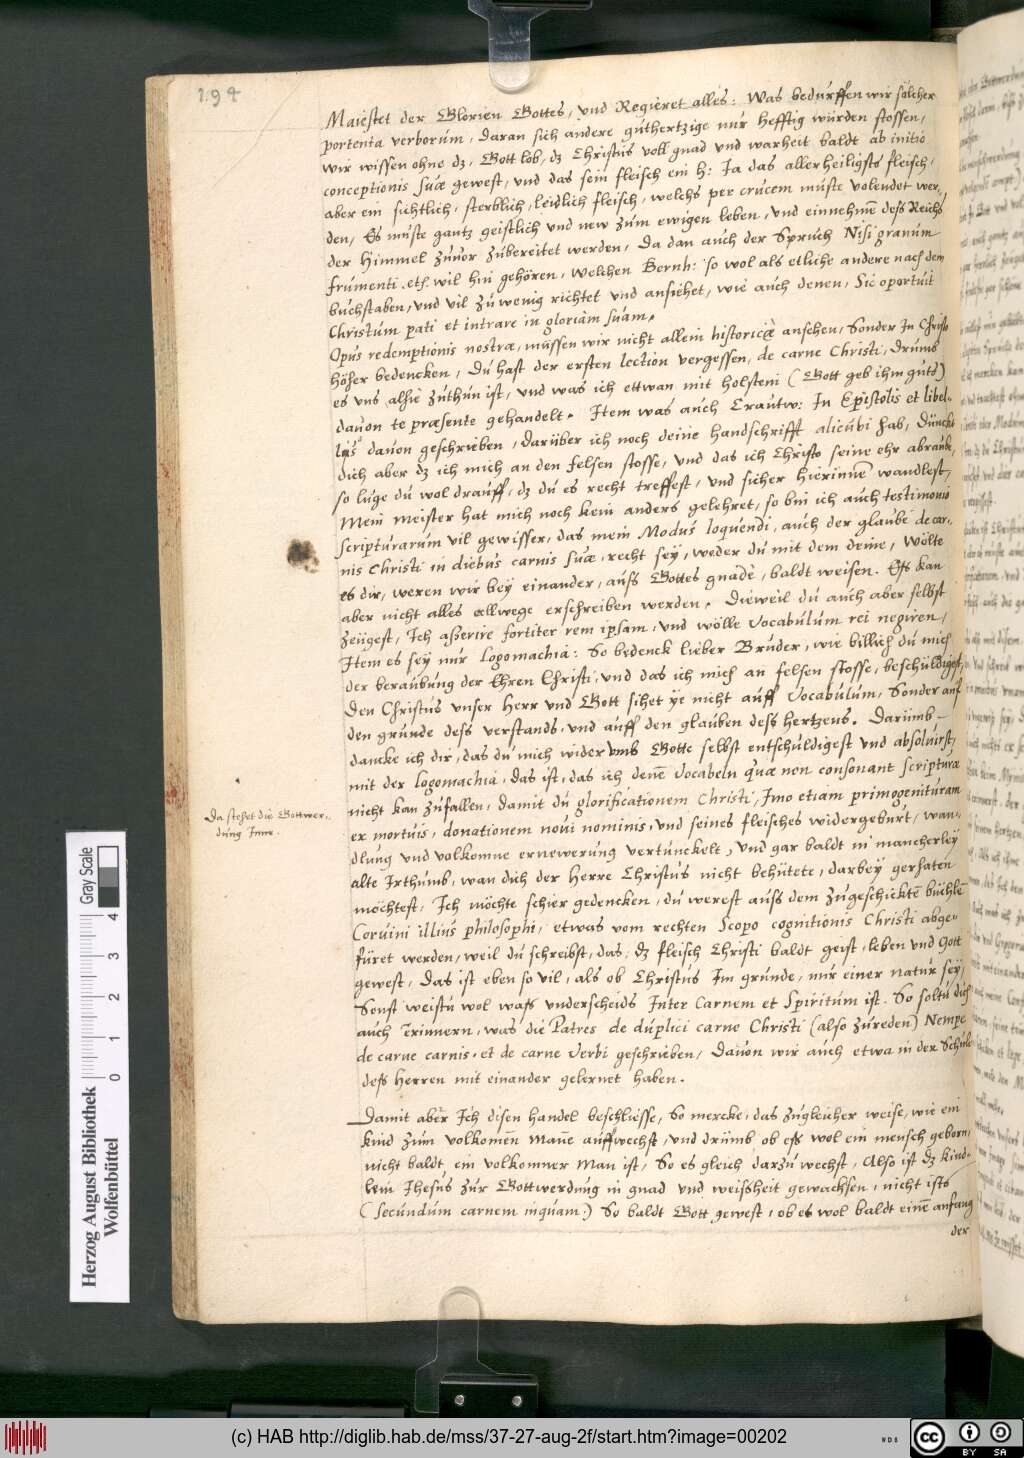 194
Maiestet der Glorien Gottes, und Regieret alles: Was bedurffen wir sölcher
portenta verborum, daran sich andere guthertzige nur hefftig würden stossen,
wir wissen ohne dz, Gott lob, dz Christus voll gnad und warheit baldt ab initio
conceptionis suæ gewest, und das sein fleisch ein h: Ja das allerheiligsts fleisch,
aber ein sichtlich, sterblich, leidlich fleisch, welchs per crucem muste volendet wer,,
den, Es muste gantz geistlich und new zum ewigen leben, und einnehmē dess Reichs
der Himmel zuuor zubereitet werden, Da dan auch der Spruch Nisi granum
frumenti. etc. wil hin gehören, welchen Bernh: so wol als etliche andere nach dem
buchstaben, und vil zu wenig richtet und ansiehet, wie auch denen, Sic oportuit
Christum pati et intrare in gloriam suam.
Opus redemptionis nostræ, müssen wir nicht allein historicæ ansehen, Sonder In Christo
höher bedencken, Du hast der ersten lection vergessen, de carne Christi, drumb
es uns alhie zuthun ist, und was ich ettwan mit holsteni (Gott geb ihm guts)
dauon te præsente gehandelt. Item was auch Crautw: In Epistolis et libel,,
lis dauon geschrieben, darüber ich noch deine handschrifft alicubi hab, Dünckt
dich aber dz ich mich an den felsen stosse, und das ich Christo seine ehr abraube,
so luge du wol drauff, dz du es recht treffest, und sicher hierinnē wandlest,
Mein meister hat mich noch kein anders gelehret, so bin ich auch testimonio
scripturarum vil gewisser, das mein Modus loquendi, auch der glaube de car,,
nis Christi in diebus carnis suæ, recht sey, weder du mit dem deine, Wölte
es dir, weren wir bey einander, auss Gottes gnade, baldt weisen. Ess kan
aber nicht alles allwege erschreiben werden. Dieweil du auch aber selbst
zeugest, Ich asserire fortiter rem ipsam, und wölle Vocabulum rei negiren,
Item es sey nur Logomachia: So bedenck lieber Bruder, wie billich du mich
der beraubung der Ehren Christi, und das ich mich an felsen stosse, beschuldigest,
Den Christus unser Herr und Gott sihet ye nicht auff Vocabulum, Sonder auf
den grunde dess verstands, und auff den glauben dess hertzens. Darumb
dancke ich dir, das du mich wider umb Gotte selbst entschuldigest und absoluirst,
mit der Logomachia, das ist, das ich denē Vocabeln quæ non consonant scripturæ
nicht kan zufallen, damit du glorificationem Christi, Imo etiam primogenituram
ex mortuis, donationem noui nominis, und seines fleisches widergeburt, wan,,
dlung und volkomne ernewerung vertunckelt, und gar baldt in mancherley
alte Irthumb, wan dich der Herre Christus nicht behütete, darbey gerhaten
möchtest, Ich möchte schier gedencken, du werest auss dem zugeschicktē büchlē
Coruini illius philosophi, etwas vom rechten Scopo cognitionis Christi abge,,
füret werden, weil du schreibst, das, dz fleisch Christi baldt geist, leben und Gott
gewest, Das ist eben so vil, als ob Christus Im grunde, nur einer natur sey,
Sonst weistu wol wass underscheids Inter Carnem et Spiritum ist. So soltu dich
auch erinnern, was die Patres de duplici carne Christi (also zureden) Nempe
de carne carnis, et de carne Verbi geschrieben, Dauon wir auch etwa in der Schule
dess Herren mit einander gelernet haben.
Da stehet die Gottwer,,
dung Inne.
Damit aber Ich disen handel beschliesse, So mercke, das zugleicher weise, wie ein
kind zum volkomēn Manē auffwechst, und drumb ob ess wol ein mensch geborn,
nicht baldt ein volkomner Man ist, So es gleich darzu wechst, Also ist dz kind,,
lein Jhesus zur Gottwerdung in gnad und weissheit gewachsen, nicht ists
(secundum carnem inquam.) So baldt Gott gewest, ob es wol baldt einē anfang
der
Gray Scale
0 1 2 3 4
Herzog August Bibliothek
Wolfenbüttel
(c) HAB http://diglib.hab.de/mss/37-27-aug-2f/start.htm?image=00202
WDB
cc BY SA